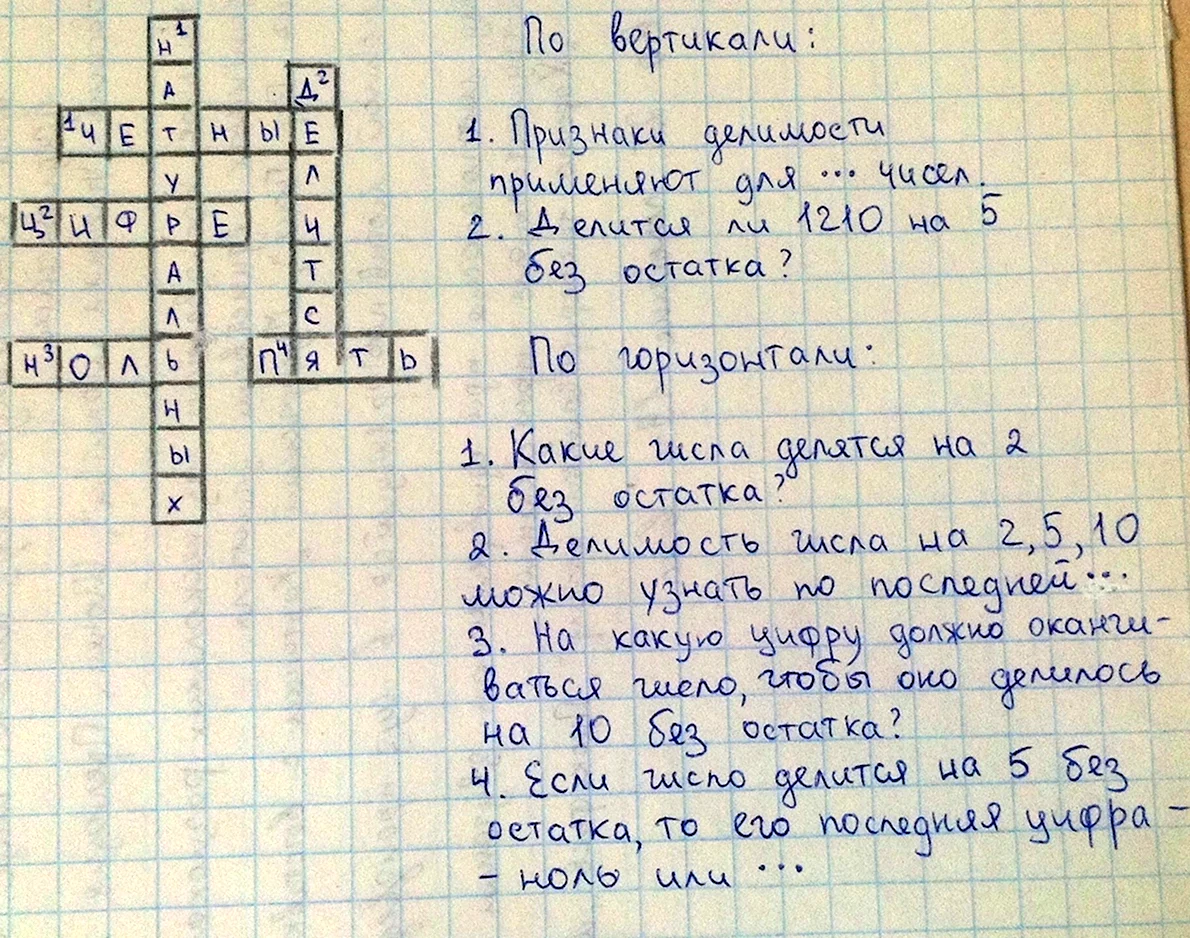 Н¹
А
Д²
¹ЧЕТНЫЕ
У
Л
Ц²ИФРЕ
И
А
Т
Л
С
Н³ОЛЬ
П⁴ЯТЬ
Н
Ы
Х
По вертикали:
1. Признаки делимости
применяют для ... чисел.
2. Делится ли 1210 на 5
без остатка?
По горизонтали:
1. Какие числа делятся на 2
без остатка?
2. Делимость числа на 2, 5, 10
можно узнать по последней ...
3. На какую цифру должно оканчи-
ваться число, чтобы оно делилось
на 10 без остатка?
4. Если число делится на 5 без
остатка, то его последняя цифра -
- ноль или ...